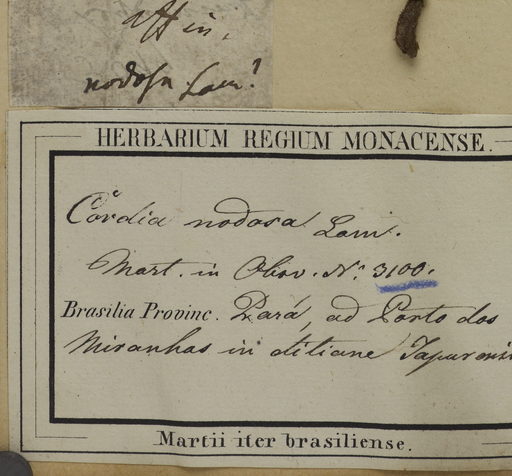 affin.
nodosa Lam?
HERBARIUM REGIUM MONACENSE.
Cordia nodosa Lam.
Mart. in Obsv. N. 3100.
Brasilia Provinc. Pará, ad Porto dos
Miranhas in ditione Japurensi
Martii iter brasiliense.